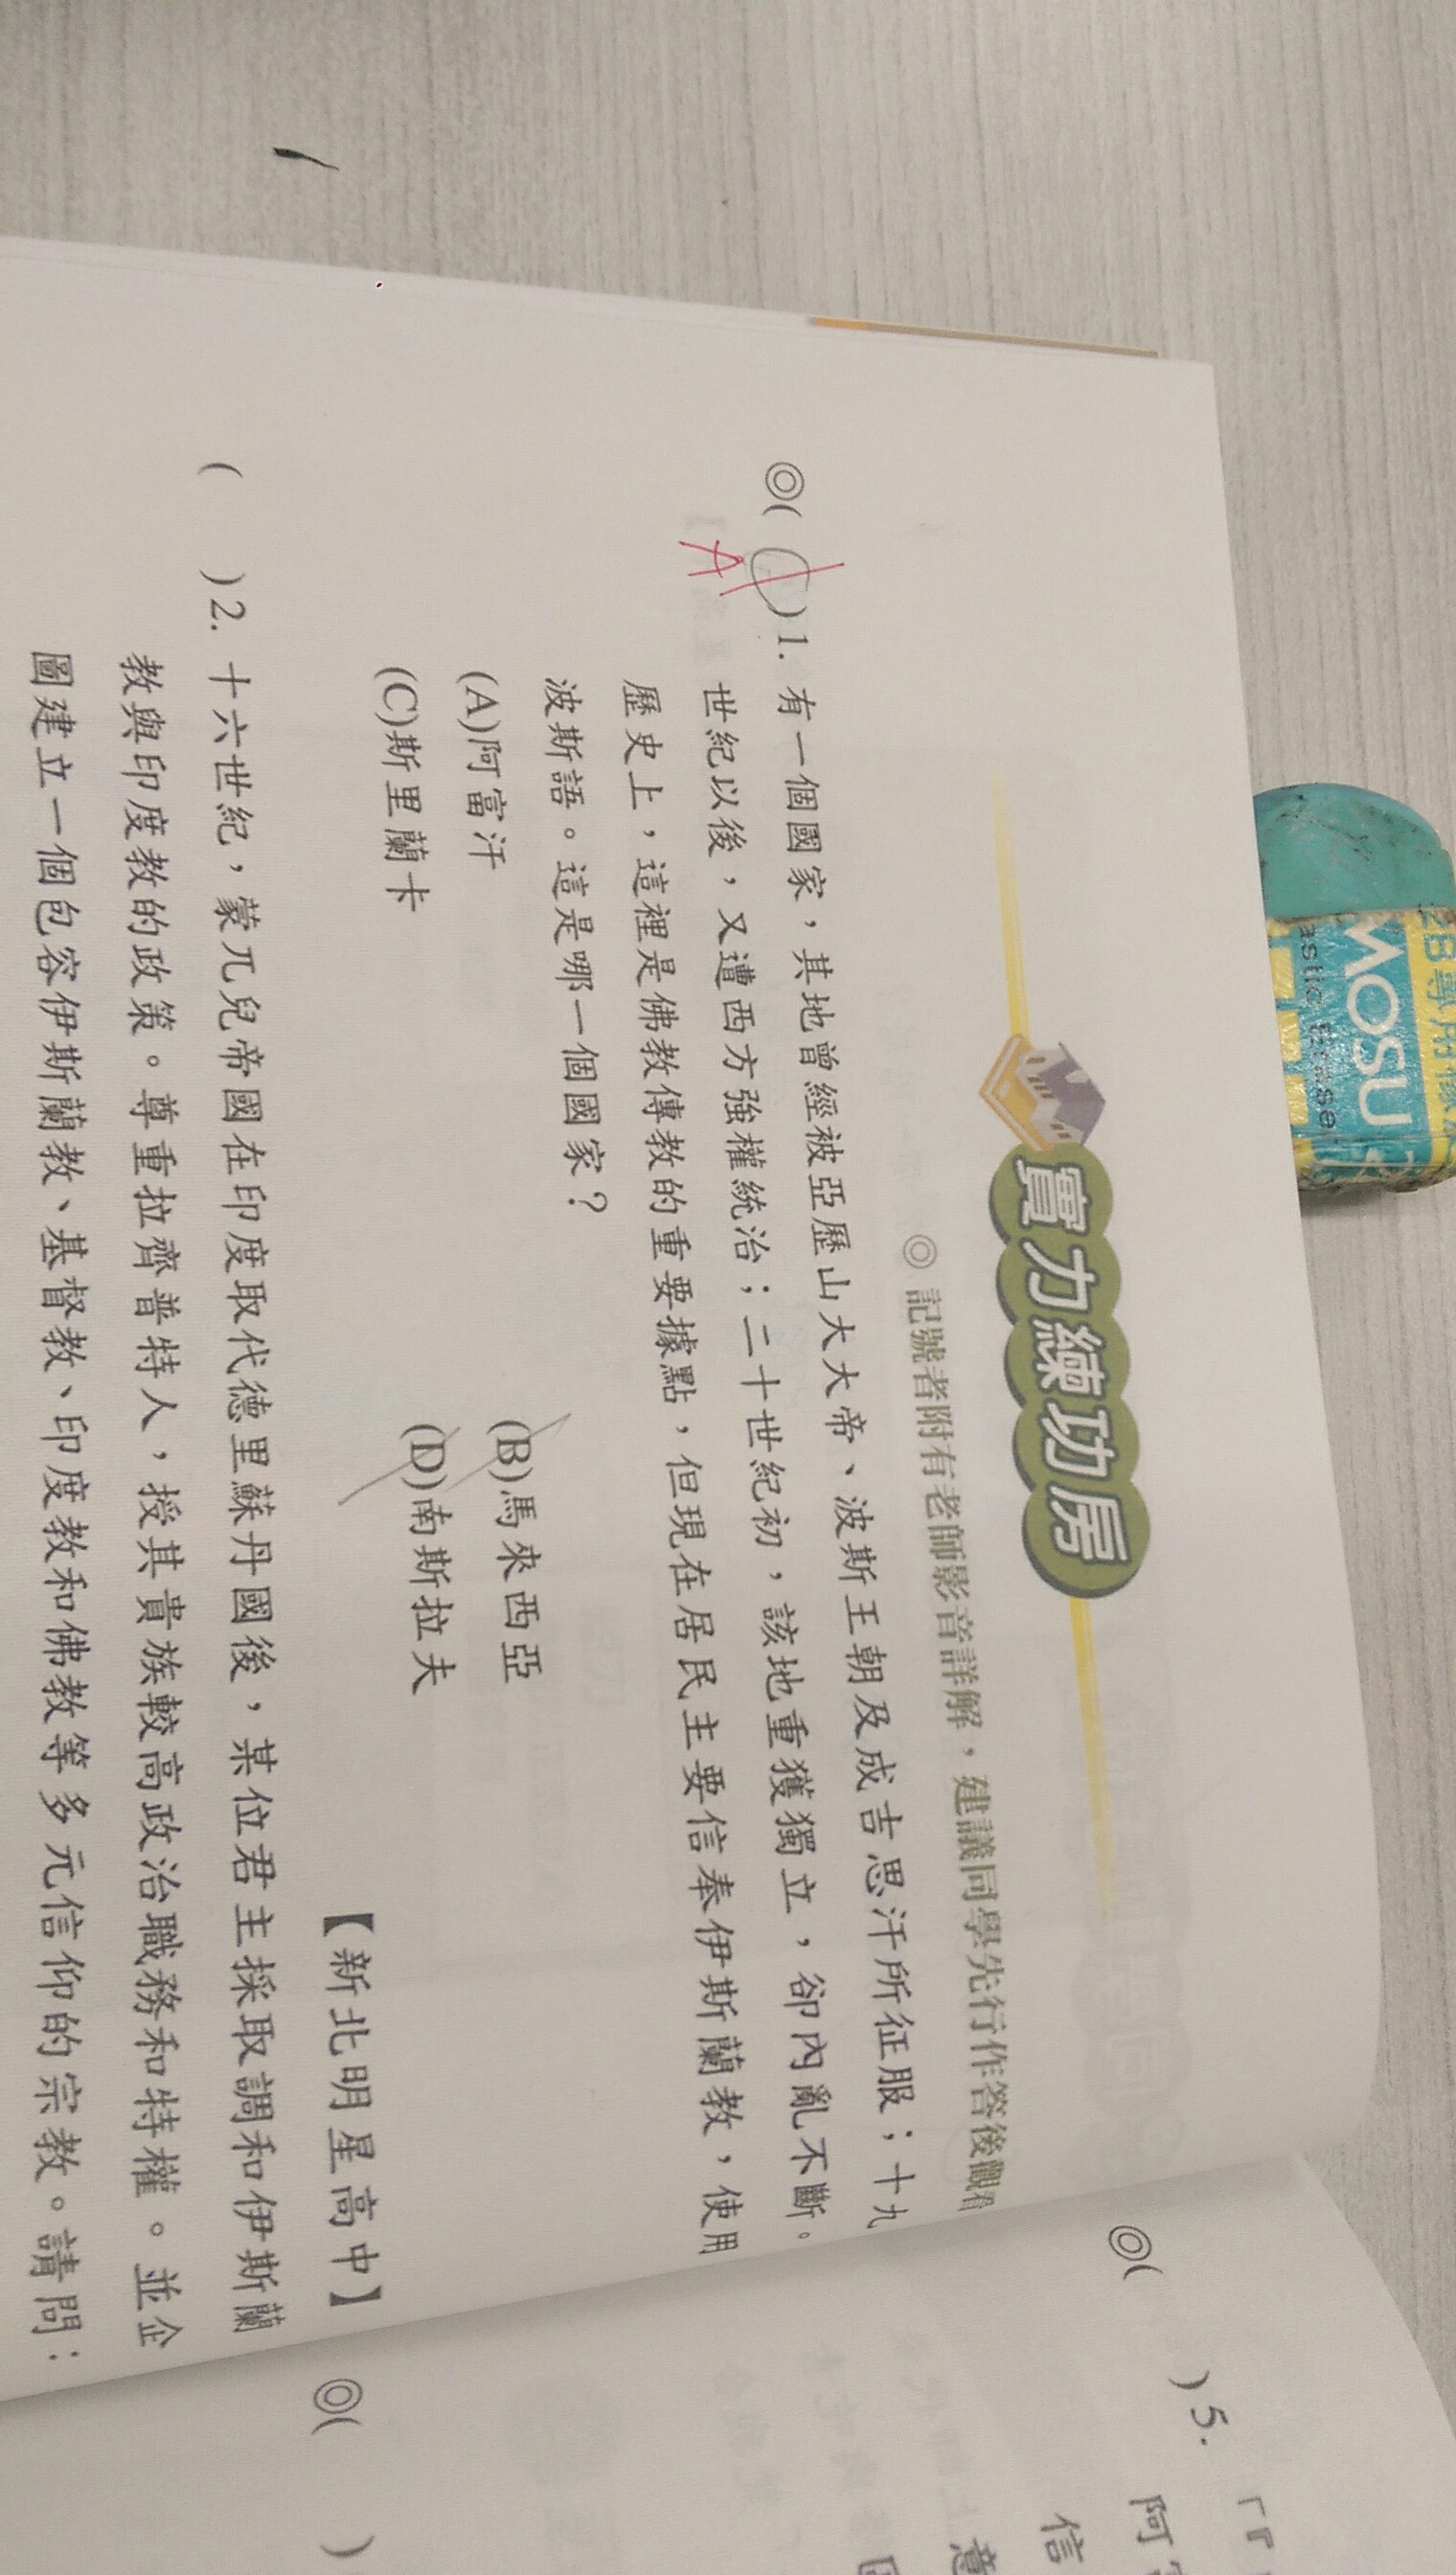 實力練功房
◎ 記號者附有老師影音詳解,建議同學先行作答後觀看
◎( )1. 有一個國家,其地曾經被亞歷山大大帝、波斯王朝及成吉思汗所征服;十九
A
世紀以後,又遭西方強權統治;二十世紀初,該地重獲獨立,卻內亂不斷。
歷史上,這裡是佛教傳教的重要據點,但現在居民主要信奉伊斯蘭教,使用
波斯語。這是哪一個國家?
(A)阿富汗 (B)馬來西亞
(C)斯里蘭卡 (D)南斯拉夫
【新北明星高中】
( )2. 十六世紀,蒙兀兒帝國在印度取代德里蘇丹國後,某位君主採取調和伊斯蘭
教與印度教的政策。尊重拉齊普特人,授其貴族較高政治職務和特權。並企
圖建立一個包容伊斯蘭教、基督教、印度教和佛教等多元信仰的宗教。請問:
◎( )5. 「『
阿
信
意
◎( )
MOSU